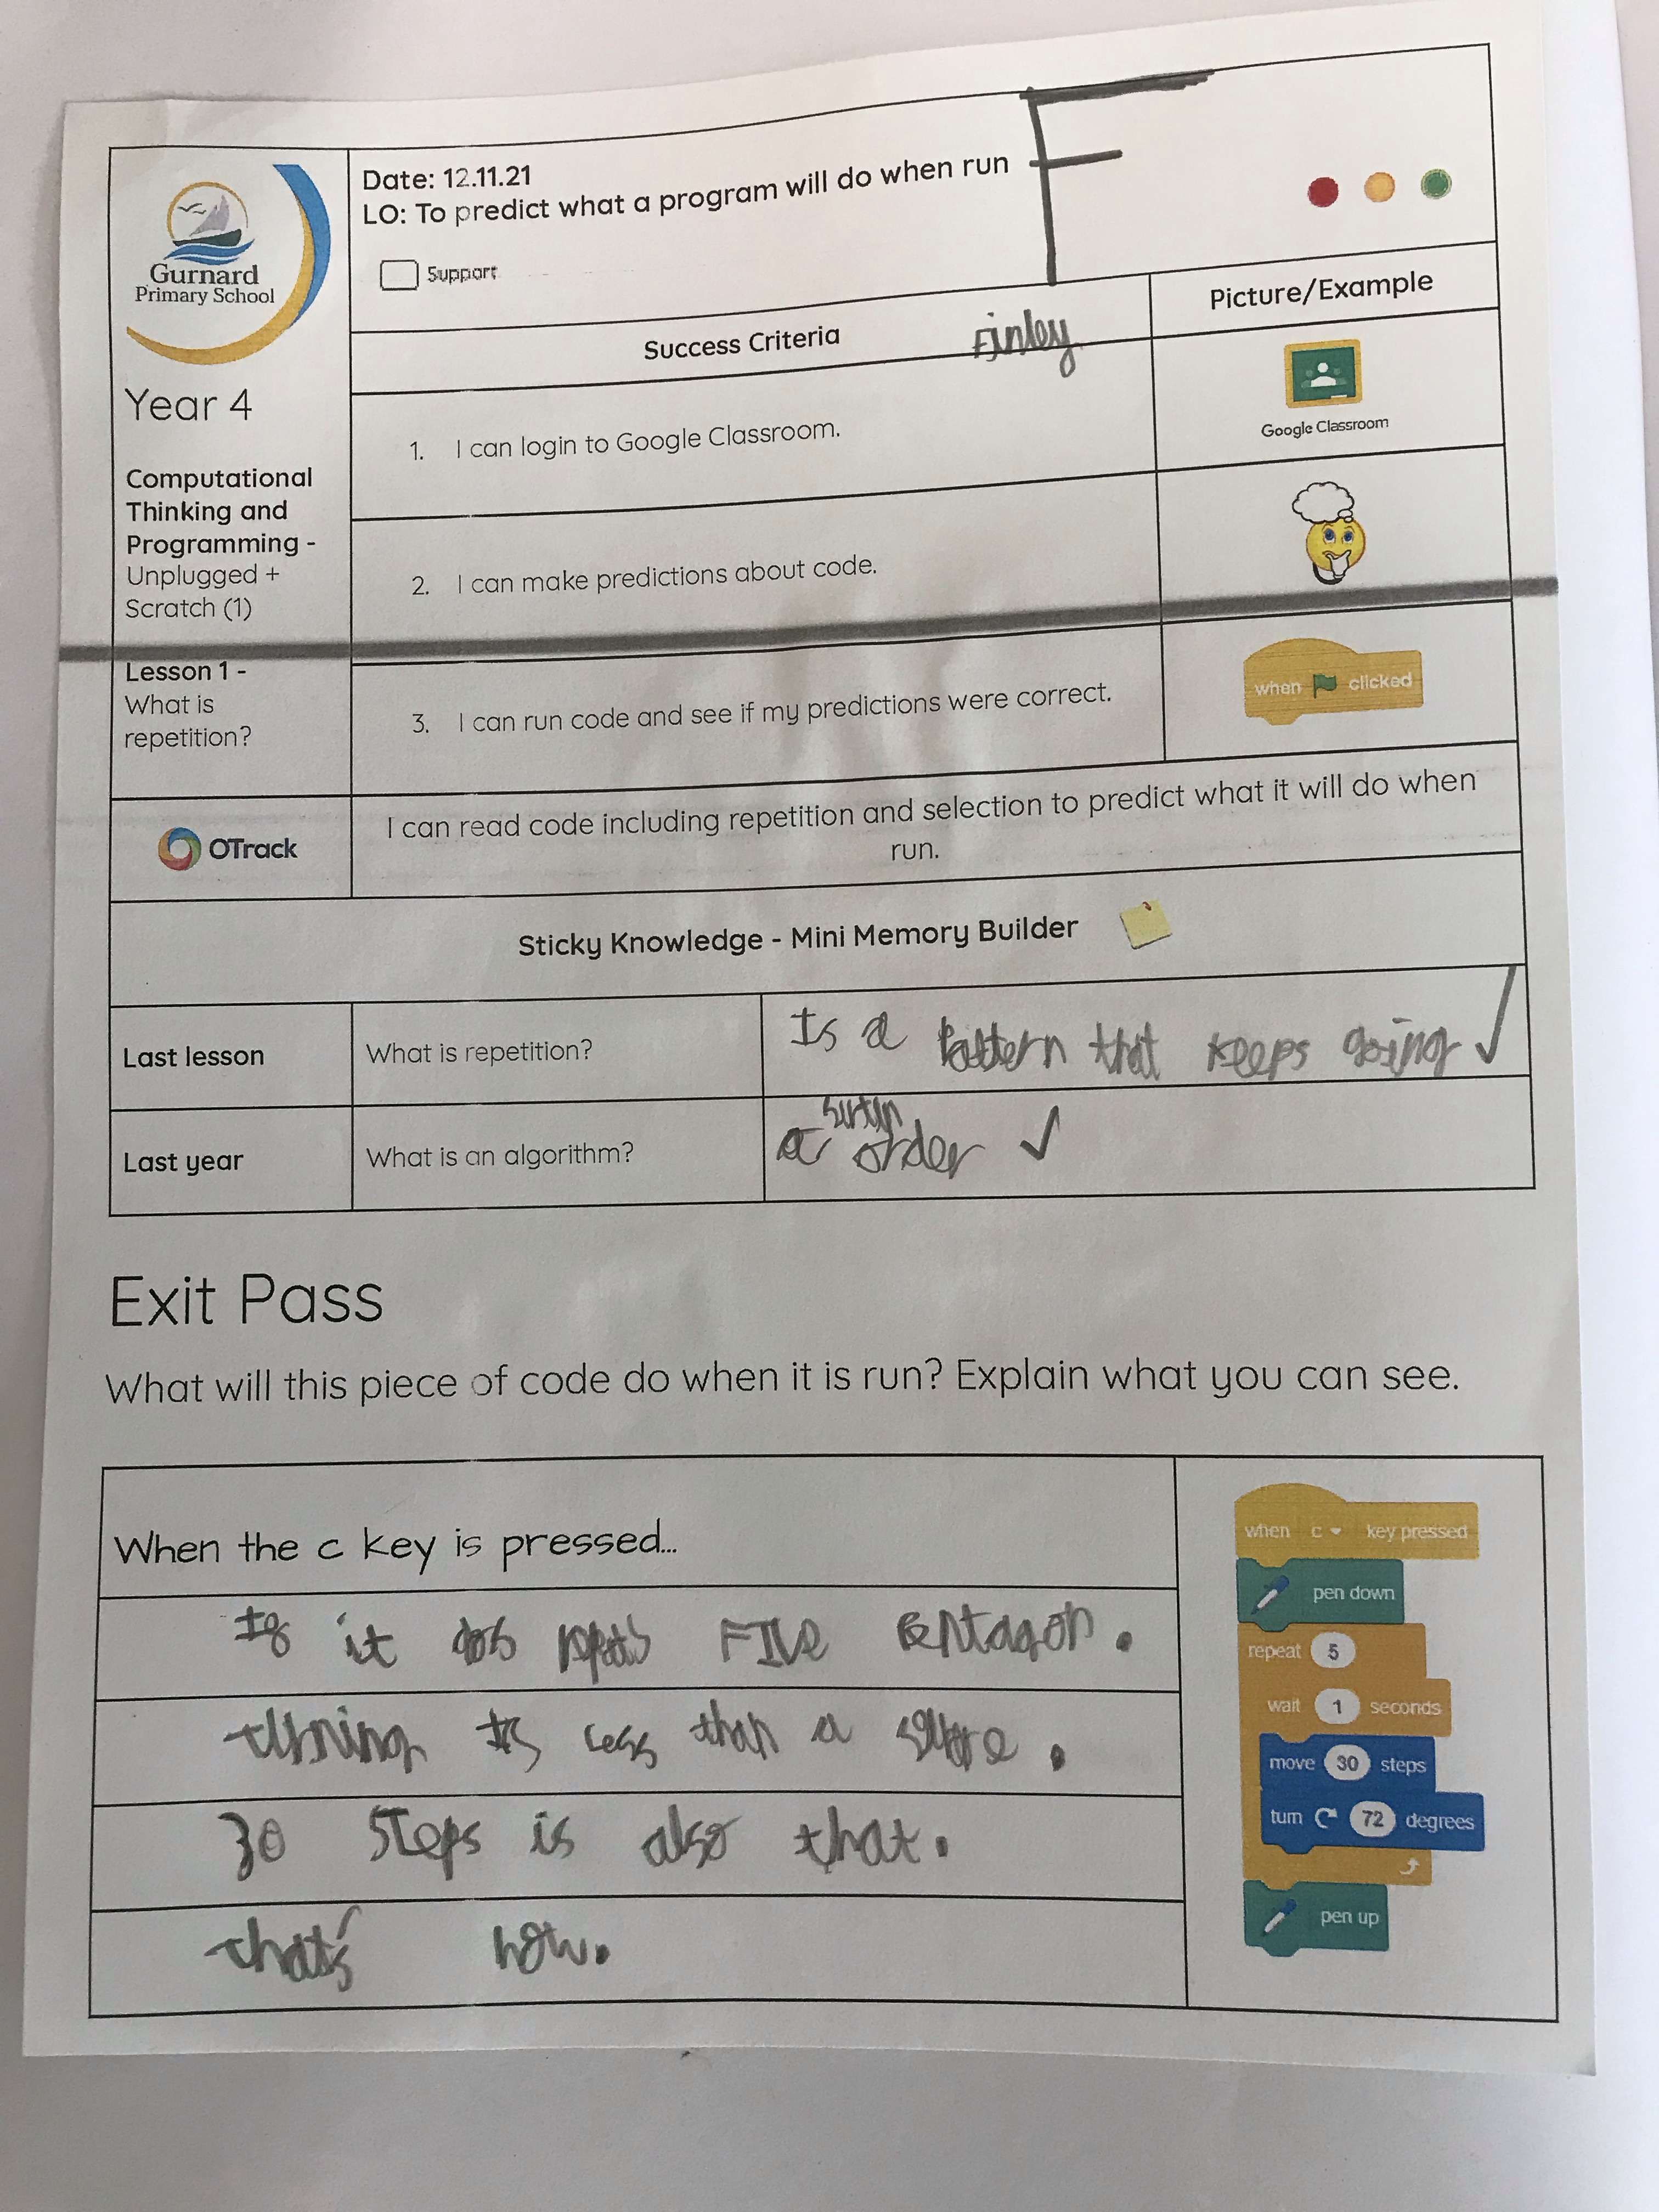 Gurnard
Primary School
Date: 12.11.21
LO: To predict what a program will do when run
F
Support
Success Criteria
Finley
Picture/Example
Year 4
Computational
Thinking and
Programming -
Unplugged +
Scratch (1)
Lesson 1 -
What is
repetition?
1. I can login to Google Classroom.
Google Classroom
2. I can make predictions about code.
3. I can run code and see if my predictions were correct.
when clicked
OTrack
I can read code including repetition and selection to predict what it will do when
run.
Sticky Knowledge - Mini Memory Builder
Last lesson
What is repetition?
Is a Pattern that keeps going ✓
Last year
What is an algorithm?
a surtin order ✓
Exit Pass
What will this piece of code do when it is run? Explain what you can see.
When the c key is pressed...
it FIVe .
turning is less than a .
30 Steps is also that.
that's how.
when c key pressed
pen down
repeat 5
wait 1 seconds
move 30 steps
turn 72 degrees
pen up